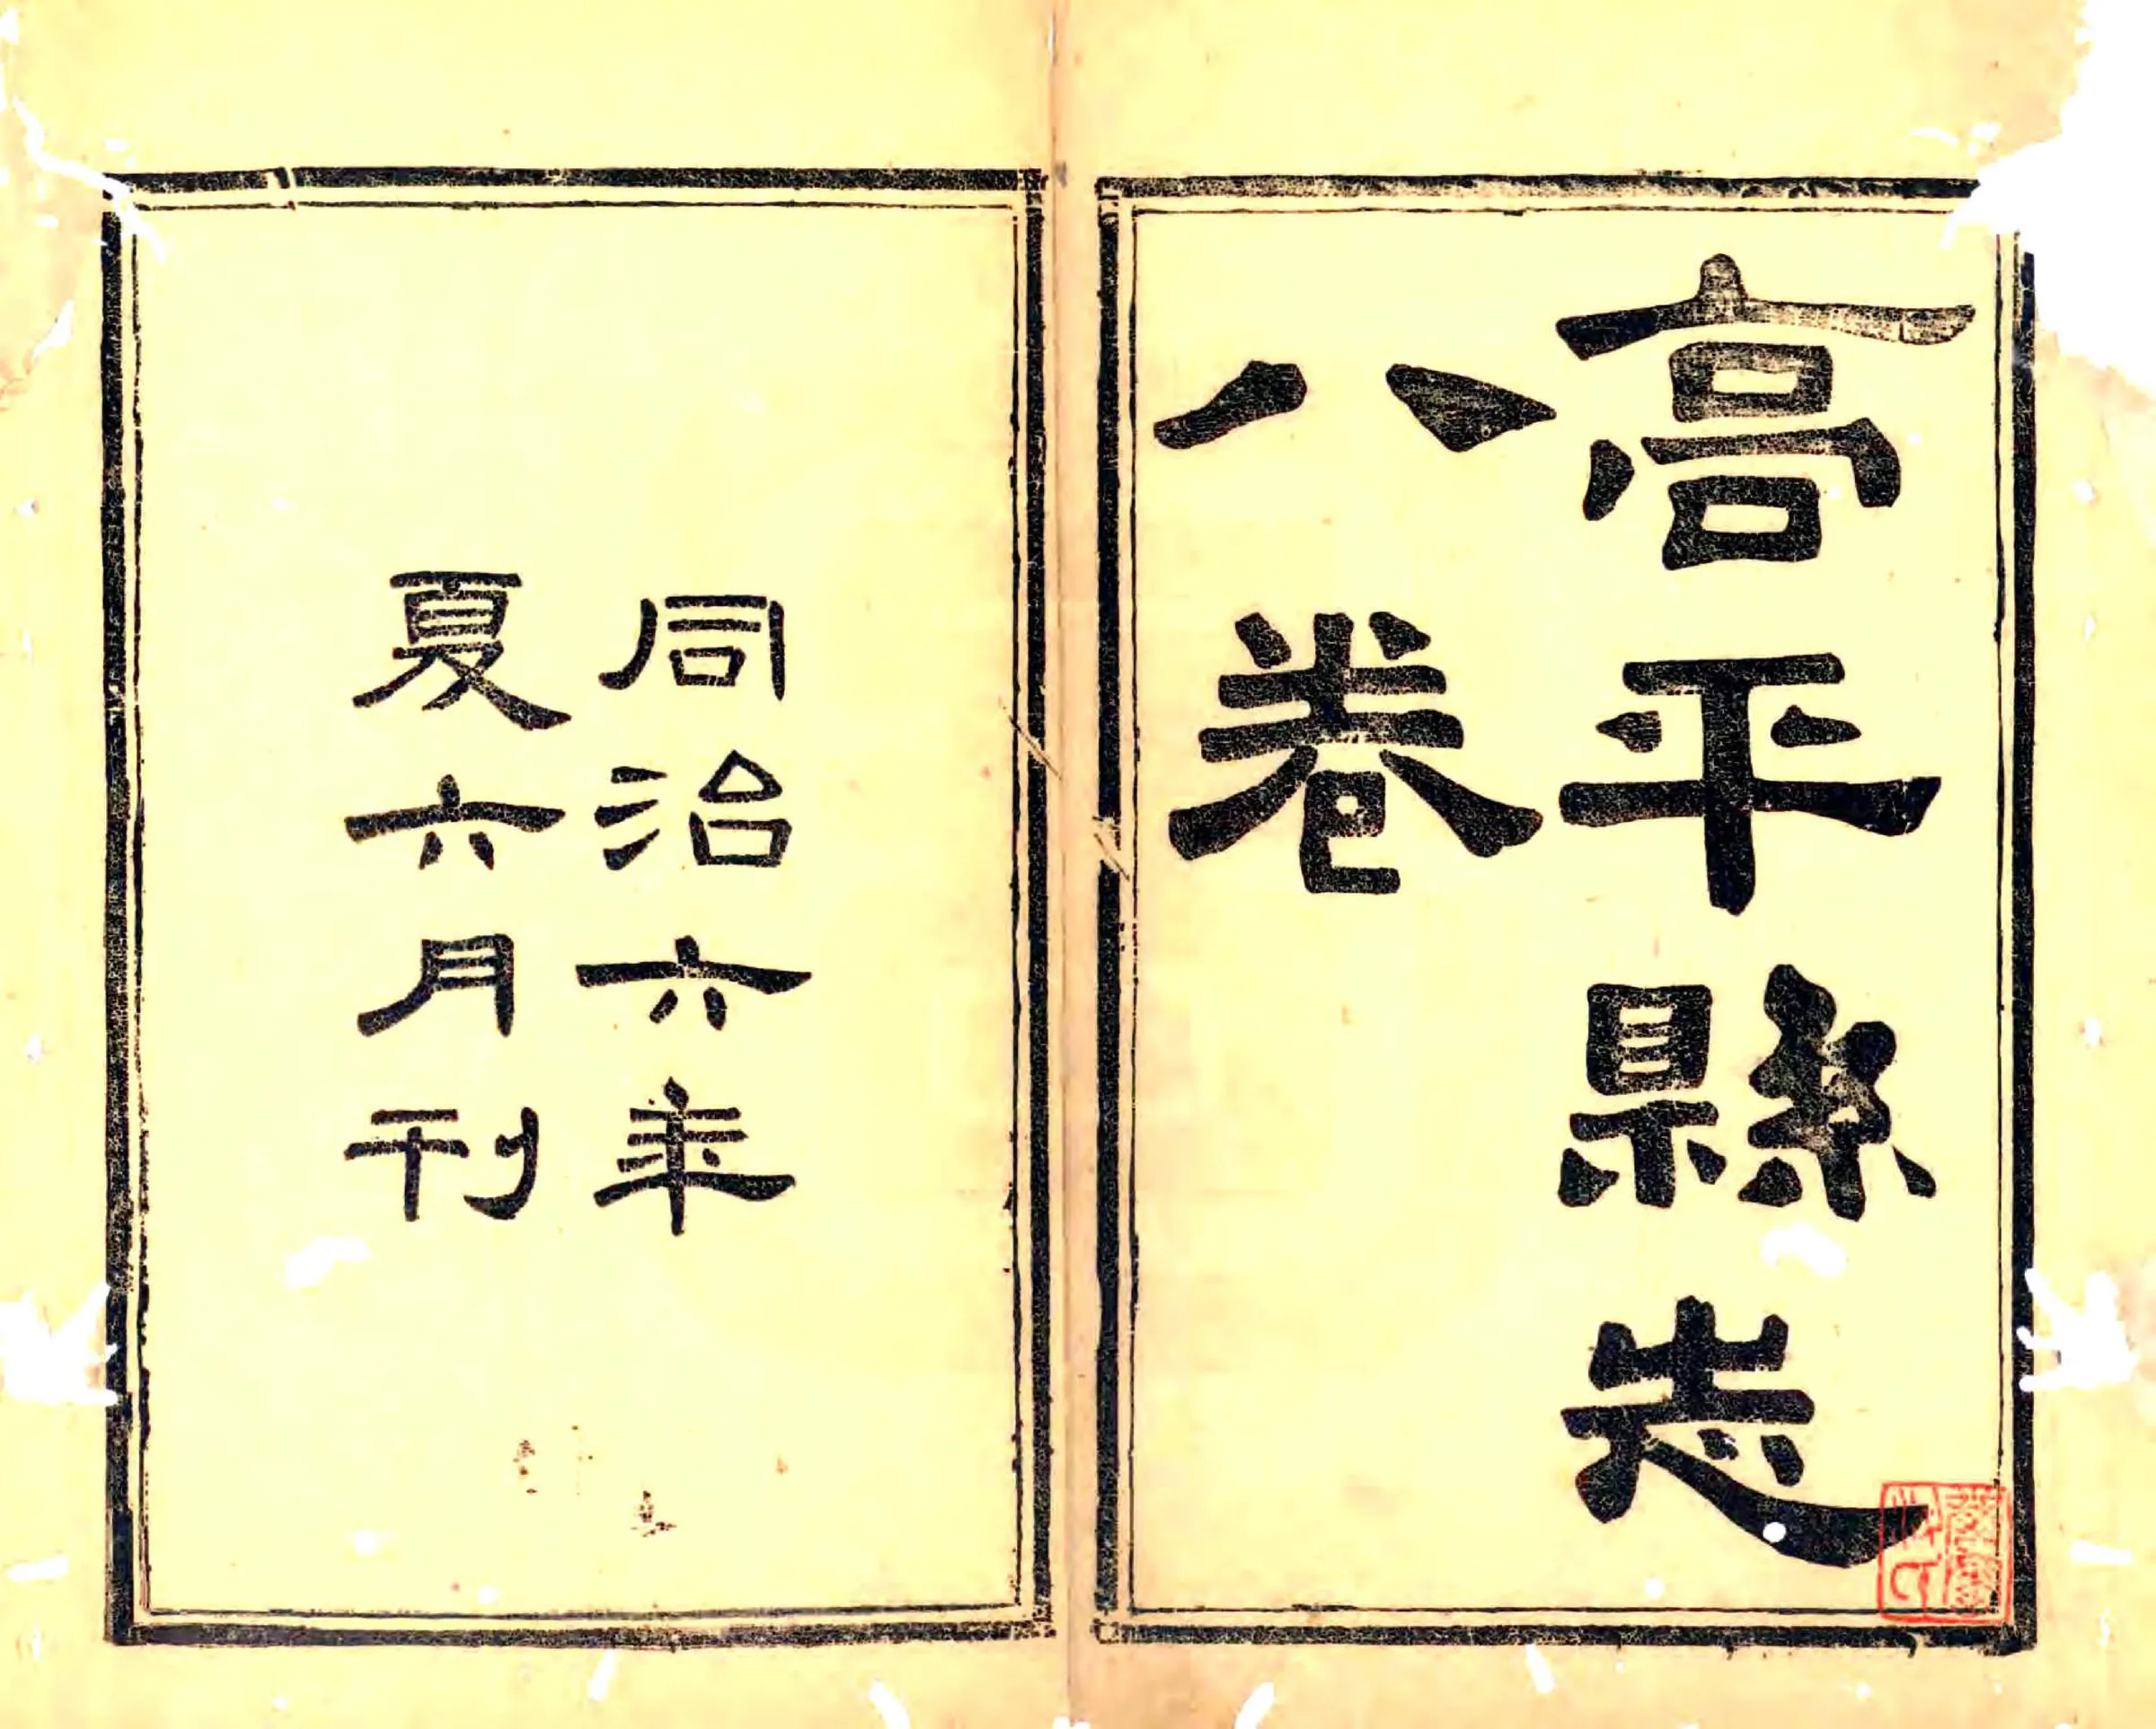 高平縣志
八卷
同治六年
夏六月刊